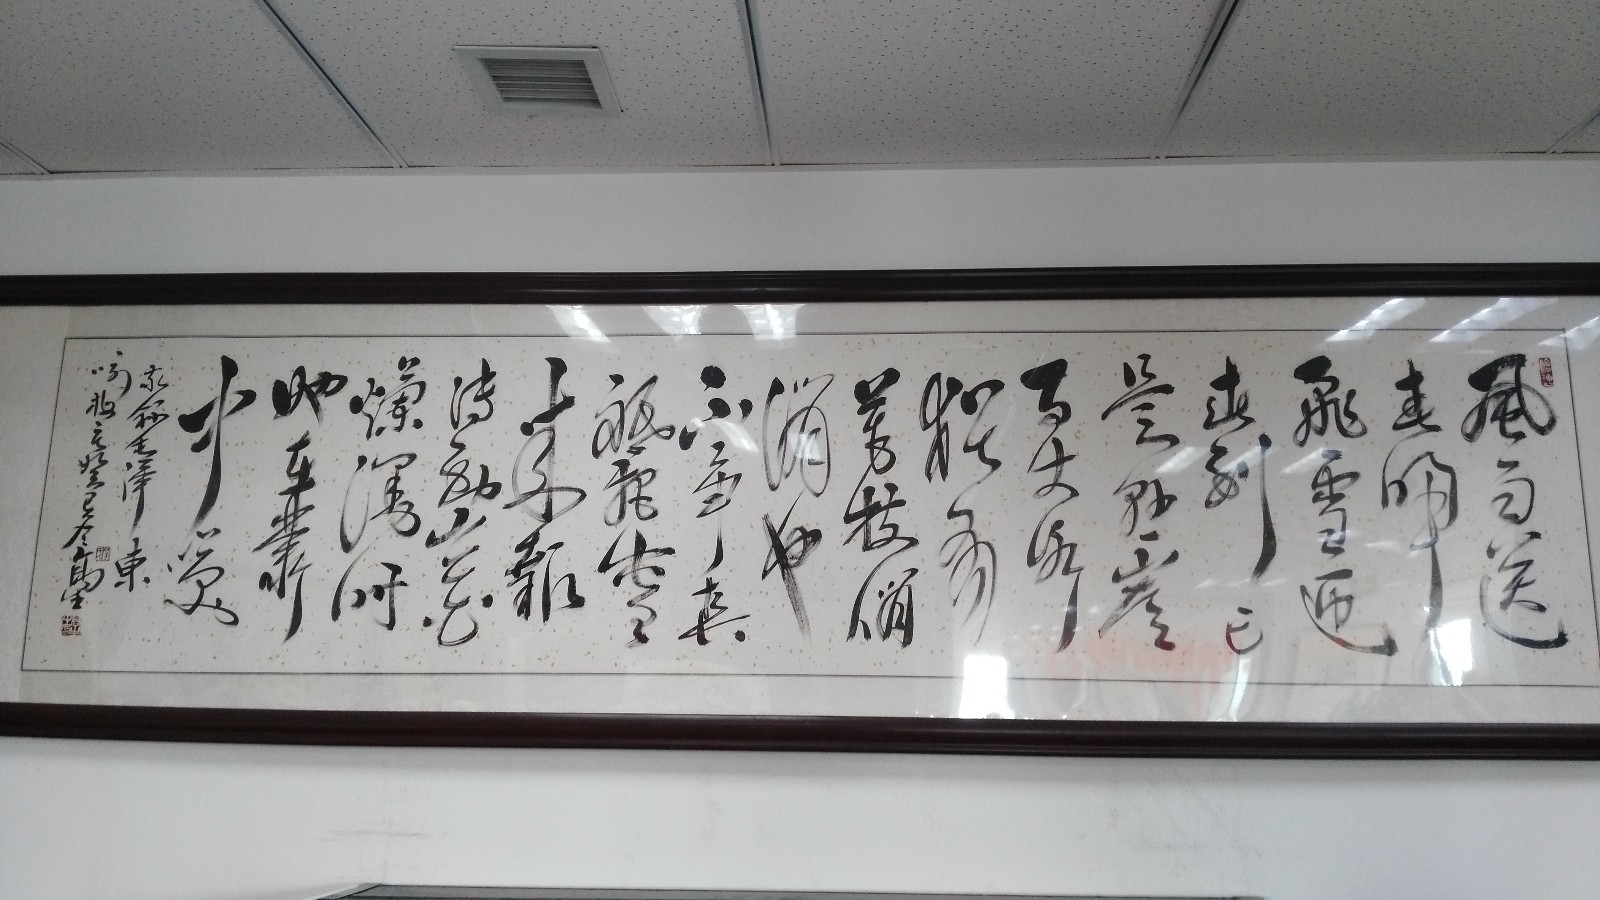 風雨送
春歸
飛雪迎
春到已
是懸崖
百丈冰
猶有
花枝俏
俏也
不爭春
祇把春
来報
待到山花
爛漫時
她在叢
中笑
毛澤東
詠梅 癸巳冬